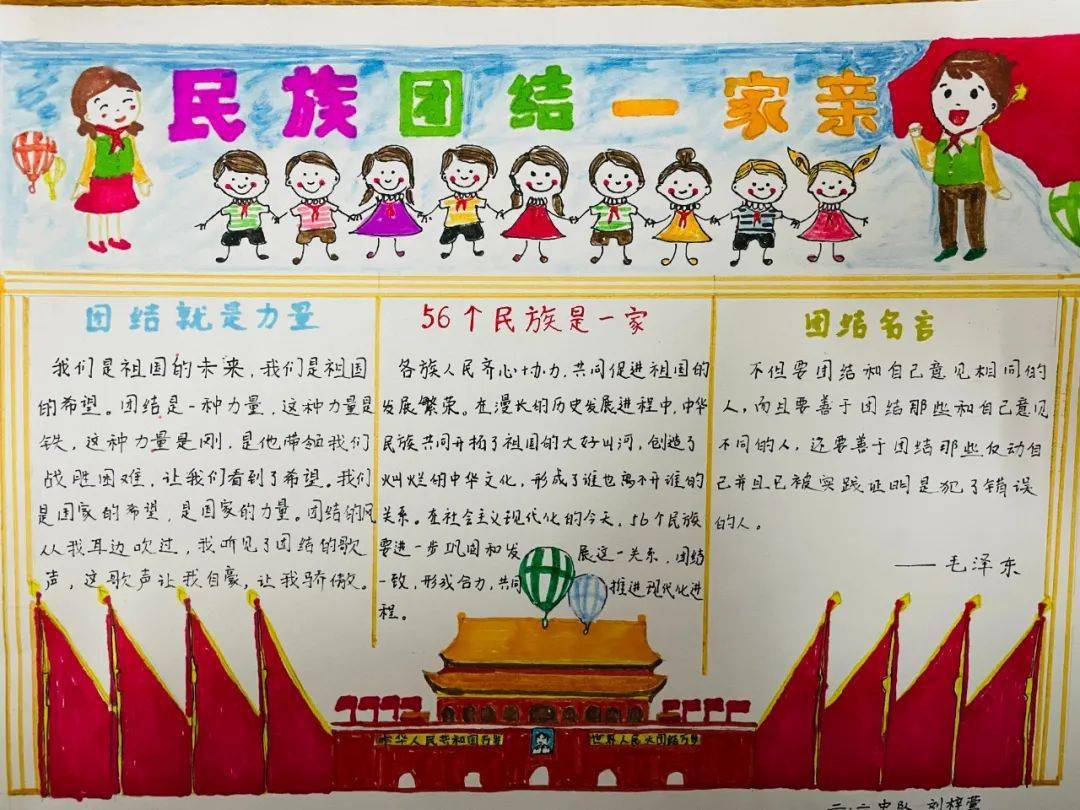 民族团结一家亲
团结就是力量
我们是祖国的未来,我们是祖国
的希望。团结是一种力量,这种力量是
铁,这种力量是刚,是他带领我们
战胜困难,让我们看到了希望。我们
是国家的希望,是国家的力量。团结的风
从我耳边吹过,我听见了团结的歌
声,这歌声让我自豪,让我骄傲。
56个民族是一家
各族人民齐心协力,共同促进祖国的
发展繁荣。在漫长的历史发展进程中,中华
民族共同开拓了祖国的大好山河,创造了
灿烂的中华文化,形成了谁也离不开谁的
关系。在社会主义现代化的今天,56个民族
要进一步巩固和发展这一关系,团结
一致,形成合力,共同推进现代化进
程。
团结名言
不但要团结和自己意见相同的
人,而且要善于团结那些和自己意见
不同的人,还要善于团结那些反动自
己并且已被实践证明是犯了错误
的人。
——毛泽东
中华人民共和国万岁
世界人民大团结万岁
二.二中队 刘梓萱